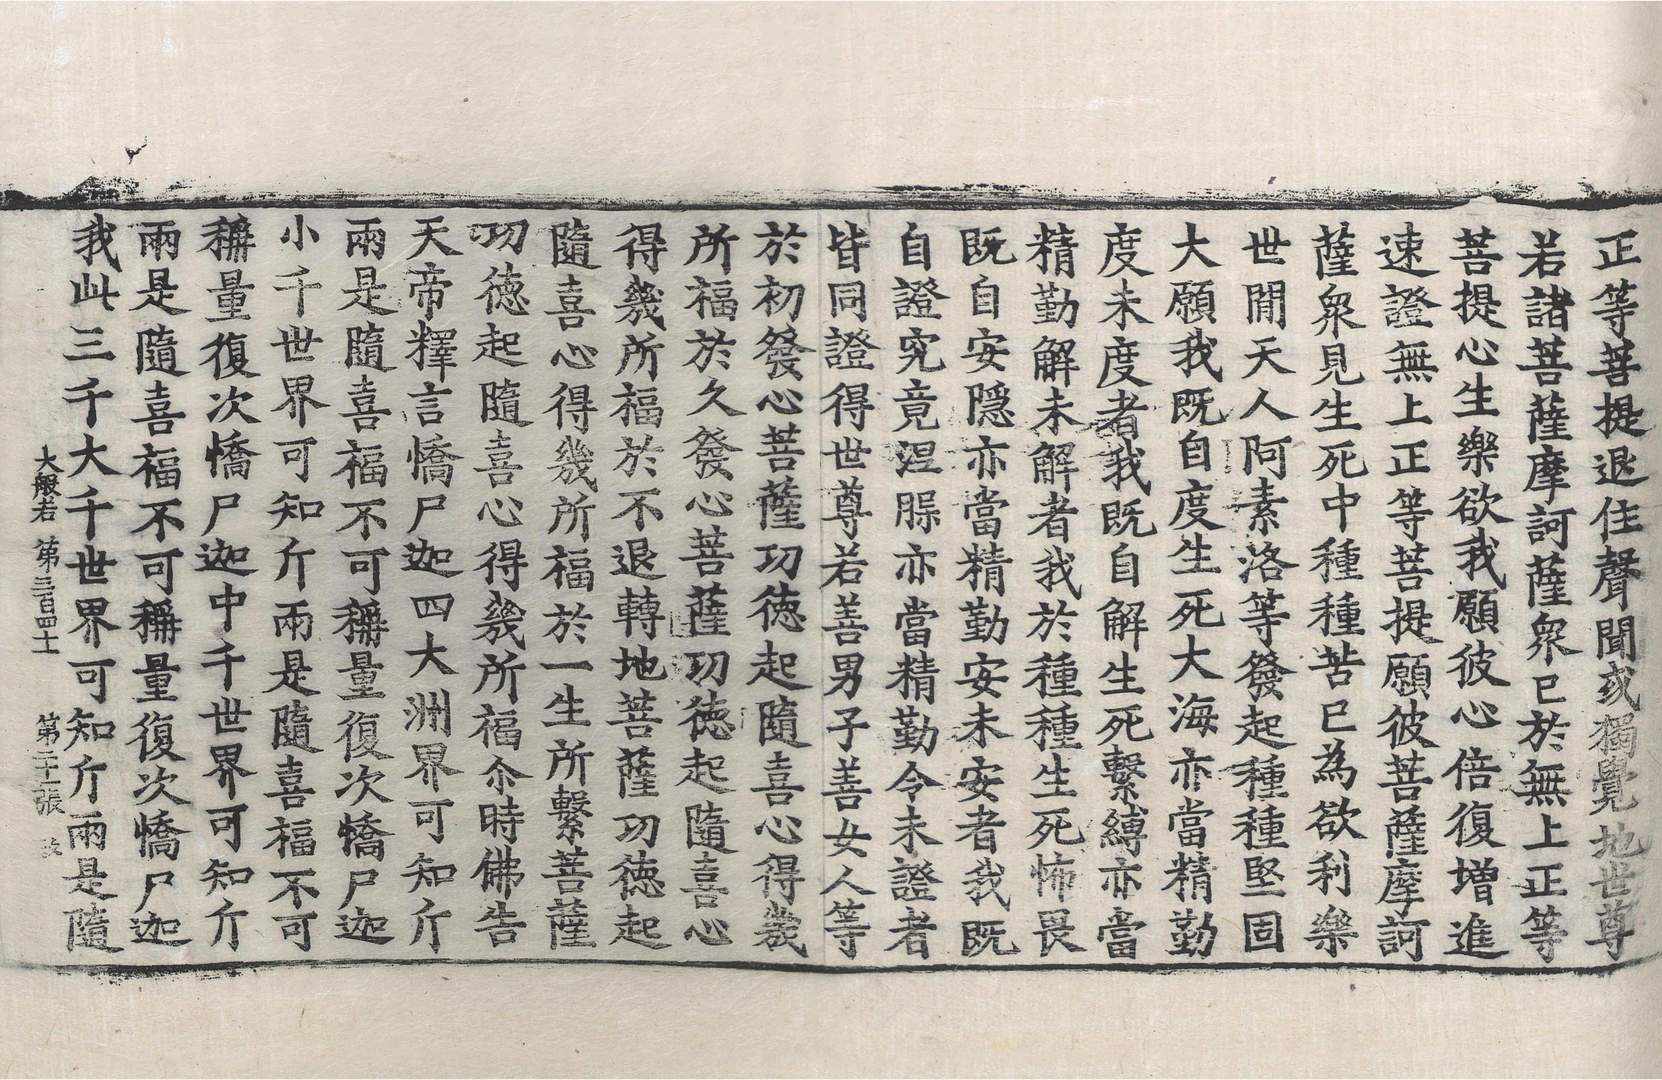 正等菩提退住聲聞或獨覺地世尊
若諸菩薩摩訶薩衆已於無上正等
菩提心生樂欲我願彼心倍復增進
速證無上正等菩提願彼菩薩摩訶
薩衆見生死中種種苦已為欲利樂
世間天人阿素洛等發起種種堅固
大願我既自度生死大海亦當精勤
度未度者我既自解生死繫縛亦當
精勤解未解者我於種種生死怖畏
既自安隱亦當精勤安未安者我既
自證究竟涅槃亦當精勤令未證者
皆同證得世尊若善男子善女人等
於初發心菩薩功德起隨喜心得幾
所福於久發心菩薩功德起隨喜心
得幾所福於不退轉地菩薩功德起
隨喜心得幾所福於一生所繫菩薩
功德起隨喜心得幾所福尒時佛告
天帝釋言憍尸迦四大洲界可知斤
兩是隨喜福不可稱量復次憍尸迦
小千世界可知斤兩是隨喜福不可
稱量復次憍尸迦中千世界可知斤
兩是隨喜福不可稱量復次憍尸迦
我此三千大千世界可知斤兩是隨
大般若 第三百四十 第二十一張